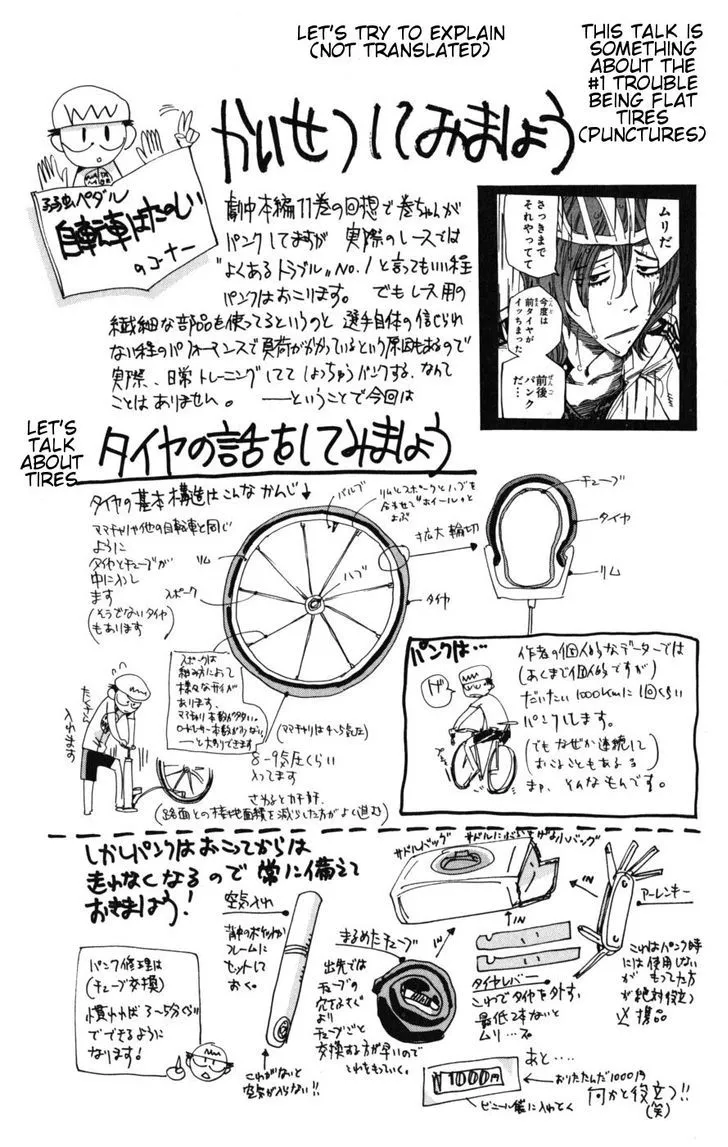 LET'S TRY TO EXPLAIN
(NOT TRANSLATED)
THIS TALK IS
SOMETHING
ABOUT THE
#1 TROUBLE
BEING FLAT
TIRES
(PUNCTURES)
かいせつしてみましょう
弱虫ペダル
自転車はたのしい
のコーナー
劇中本編11巻の回想で巻ちゃんが
パンクしてますが 実際のレースでは
"よくあるトラブル"No.1と言ってもいい程
パンクはおこります。 でもレース用の
繊細な部品を使ってるというのと 選手自体の信じられ
ない程のパフォーマンスで負荷がかかっているという原因もあるので
実際、日常トレーニングしてて しょっちゅうパンクする、なんて
ことはありません。 ――ということで今回は
ムリだ
さっきまで
それやってて
今度は
前タイヤが
イッちまった
前後
パンク
だ…
LET'S
TALK
ABOUT
TIRES
タイヤの話をしてみましょう
タイヤの基本構造はこんなかんじ↓
ママチャリや他の自転車と同じ
ように
タイヤとチューブが
中に入って
ます
(そうでないタイヤ
もあります)
バルブ
リムとスポークとハブを
合わせて"ホイール"と
よぶ
リム
スポーク
ハブ
タイヤ
拡大輪切
チューブ
タイヤ
リム
スポークは
組み方によって
様々なサイがが
あります。
ママチャリ本数が多い。
ロードレーサー本数が少ない。
――と大別できます
(ママチャリは4~5気圧)
8-9気圧くらい
入ってます
さわるとカチカチ
(路面との接地面積を減らした方がよく進む)
たくさん
入れます
パンクは…
作者の個人的なデーターでは
(あくまで個人的ですが)
だいたい1000kmに1回くらい
パンクします。
(でもなぜか連続して
おこることもある)
まァ、そんなもんです。
しかしパンクはおこってからは
走れなくなるので 常に備えて
おきましょう!
パンク修理は
(チューブ交換)
慣れれば3~5分ぐらい
でできるように
なります!
空気入れ
背中のポケットか
フレームに
セットして
おく。
これがないと
空気が入らない!!
まるめたチューブ
出先では
チューブの
穴をふさぐ
より
チューブごと
交換する方が早いので
これをもっていく。
サドルバッグ
サドルにぶらさげる小バッグ
IN
IN
IN
タイヤレバー
これでタイヤを外す。
最低2本ないと
ムリ…
アーレンキー
これはパンク時
には使用しない
が もってた方
が絶対役立つ
必携品
あと…
¥1000円
おりたたんだ1000円
ビニール袋に入れとく
何かと役立つ!!
(笑)